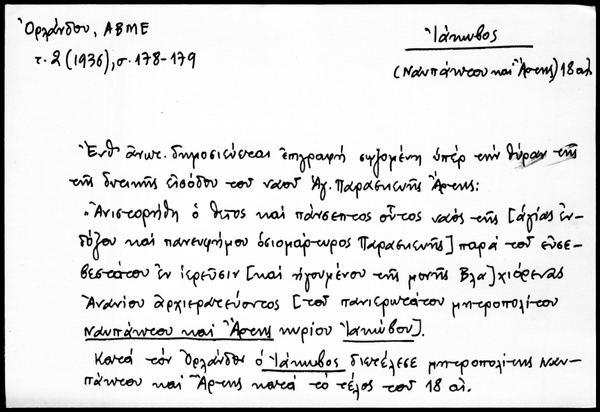 Ὀρλάνδου, ΑΒΜΕ
τ. 2 (1936), σ. 178-179
Ἰάκωβος
(Ναυπάκτου καὶ Ἄρτης) 18 αἰ.
Ἐνθ' ἀνωτ. δημοσιεύεται ἐπιγραφὴ σῳζομένη ὑπὲρ τὴν θύραν τῆς
τῆς δυτικῆς εἰσόδου τοῦ ναοῦ Ἁγ. Παρασκευῆς Ἄρτης:
"Ἀνιστορήθη ὁ θεῖος καὶ πάνσεπτος οὗτος ναὸς τῆς [ἁγίας ἐν-
δόξου καὶ πανευφήμου ὁσιομάρτυρος Παρασκευῆς] παρὰ τοῦ εὐσε-
βεστάτου ἐν ἱερεῦσιν [καὶ ἡγουμένου τῆς μονῆς Βλα]χιόρενας
Ἀνανίου ἀρχιερατεύοντος [τοῦ πανιερωτάτου μητροπολίτου
Ναυπάκτου καὶ Ἄρτης κυρίου Ἰακώβου].
Κατὰ τὸν Ὀρλάνδον ὁ Ἰάκωβος διετέλεσε μητροπολίτης Ναυ-
πάκτου καὶ Ἄρτης κατὰ τὸ τέλος τοῦ 18 αἰ.